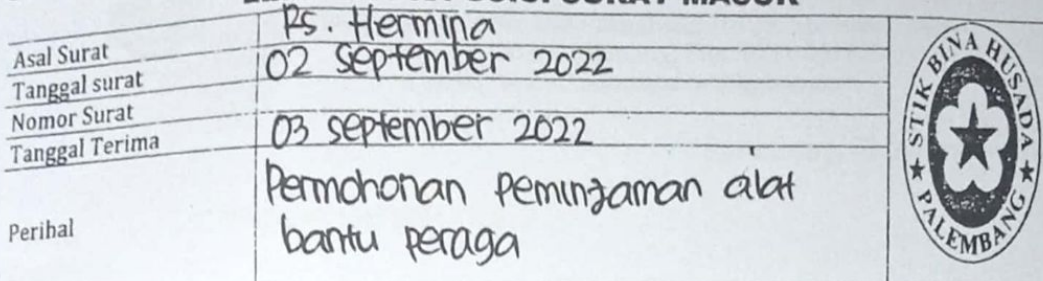 SURAT MASUK
Asal Surat Rs. Hermina
Tanggal surat 02 September 2022
Nomor Surat
Tanggal Terima 03 september 2022
Perihal Permohonan Peminjaman alat
bantu peraga
STIK BINA HUSADA
PALEMBANG